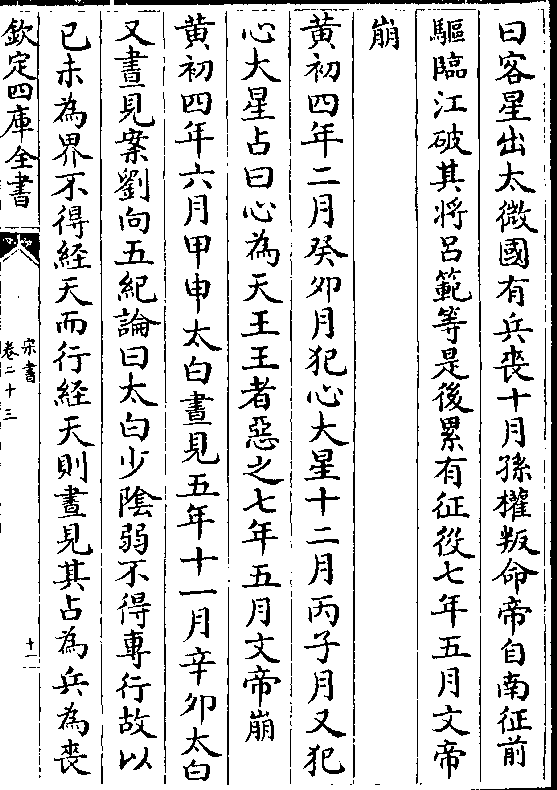 曰客星出太微國有兵喪十月孫權叛命帝自南征前
驅臨江破其将呂範等是後累有征役七年五月文帝
崩
黄初四年二月癸卯月犯心大星十二月丙子月又犯
心大星占曰心為天王王者惡之七年五月文帝崩
黄初四年六月甲申太白晝見五年十一月辛卯太白
又晝見案劉向五紀論曰太白少陰弱不得專行故以
已未為界不得経天而行経天則晝見其占為兵為喪
欽定四庫全書
宋書
卷二十三
十二